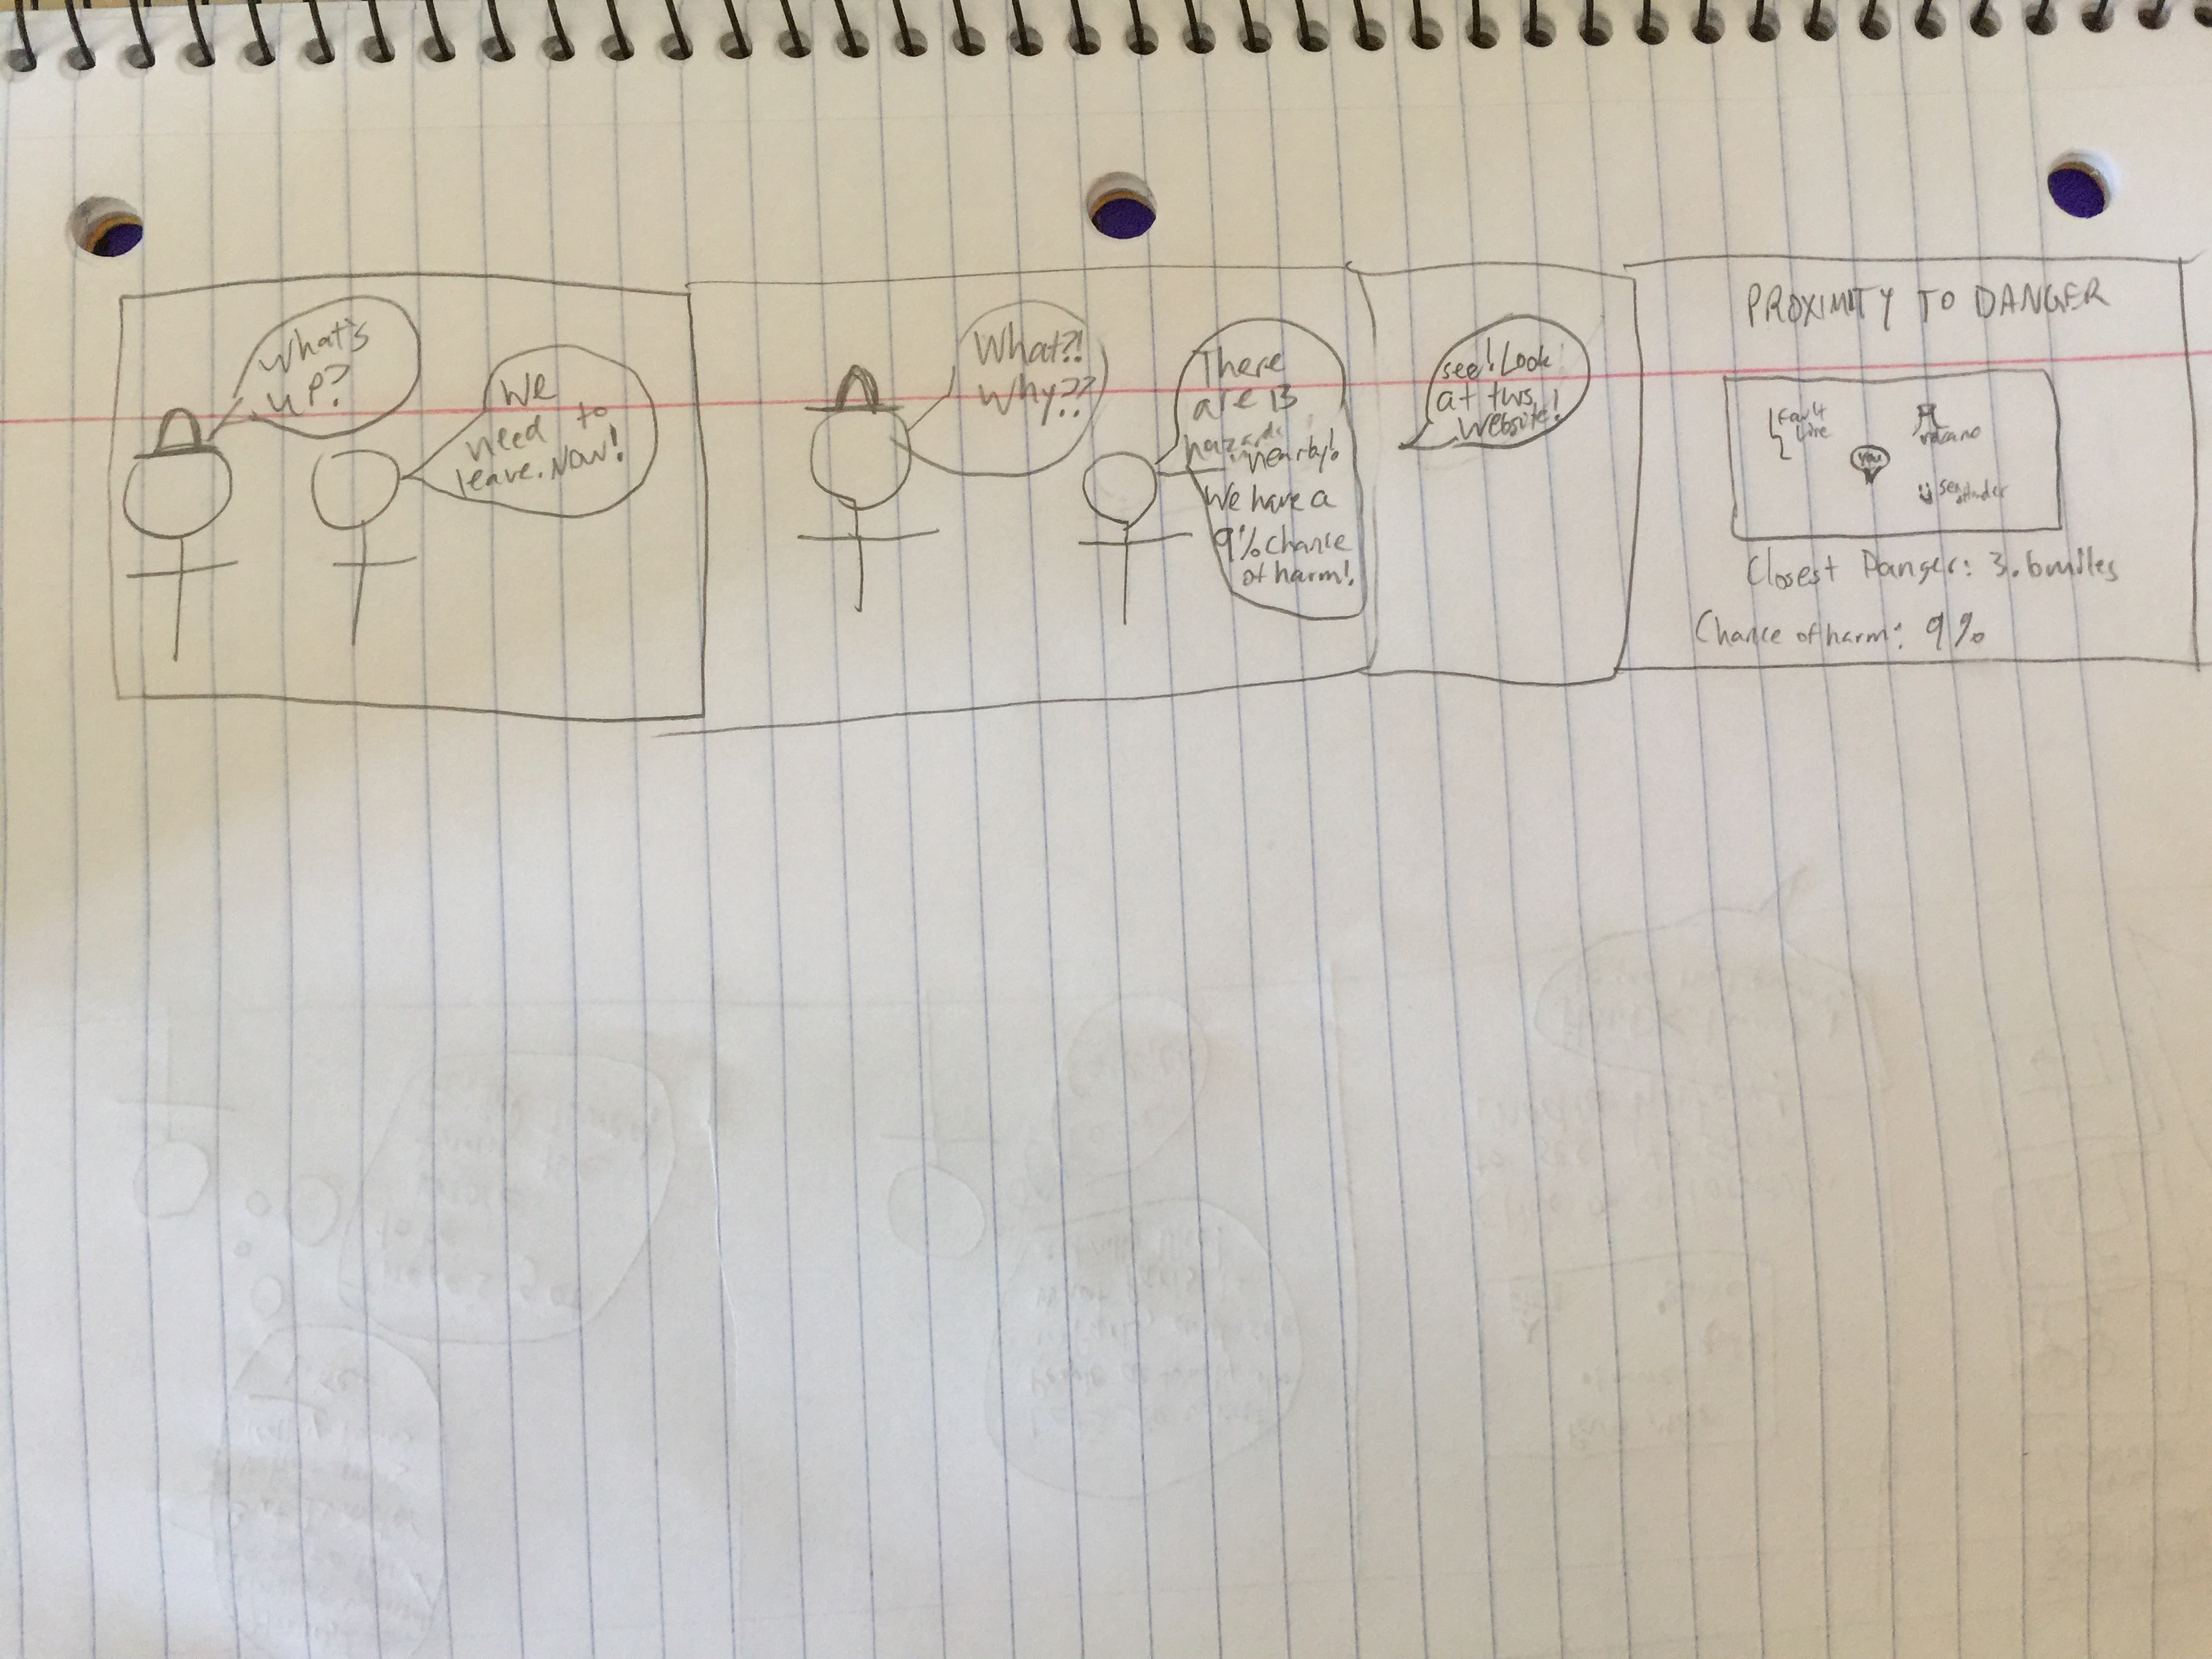 What's
up?
We
need to
leave. Now!
What?!
Why??
There
are 13
hazards nearby!
We have a
9% chance
of harm!
see! Look
at this
website!
PROXIMITY TO DANGER
fault
line
you
volcano
Closest Danger: 3.6 miles
Chance of harm: 9%